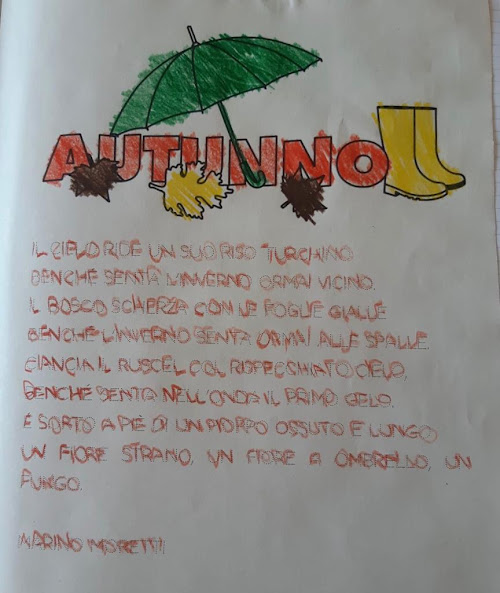 AUTUNNO
IL CIELO RIDE UN SUO RISO TURCHINO
BENCHÉ SENTA L'INVERNO ORMAI VICINO.
IL BOSCO SCHERZA CON LE FOGLIE GIALLE
BENCHÉ L'INVERNO SENTA ORMAI ALLE SPALLE.
CIANCIA IL RUSCEL COL RISPECCHIATO CIELO,
BENCHÉ SENTA NELL'ONDA IL PRIMO GELO.
È SORTO A PIÈ DI UN PIOPPO OSSUTO E LUNGO
UN FIORE STRANO, UN FIORE A OMBRELLO, UN
FUNGO.
MARINO MORETTI